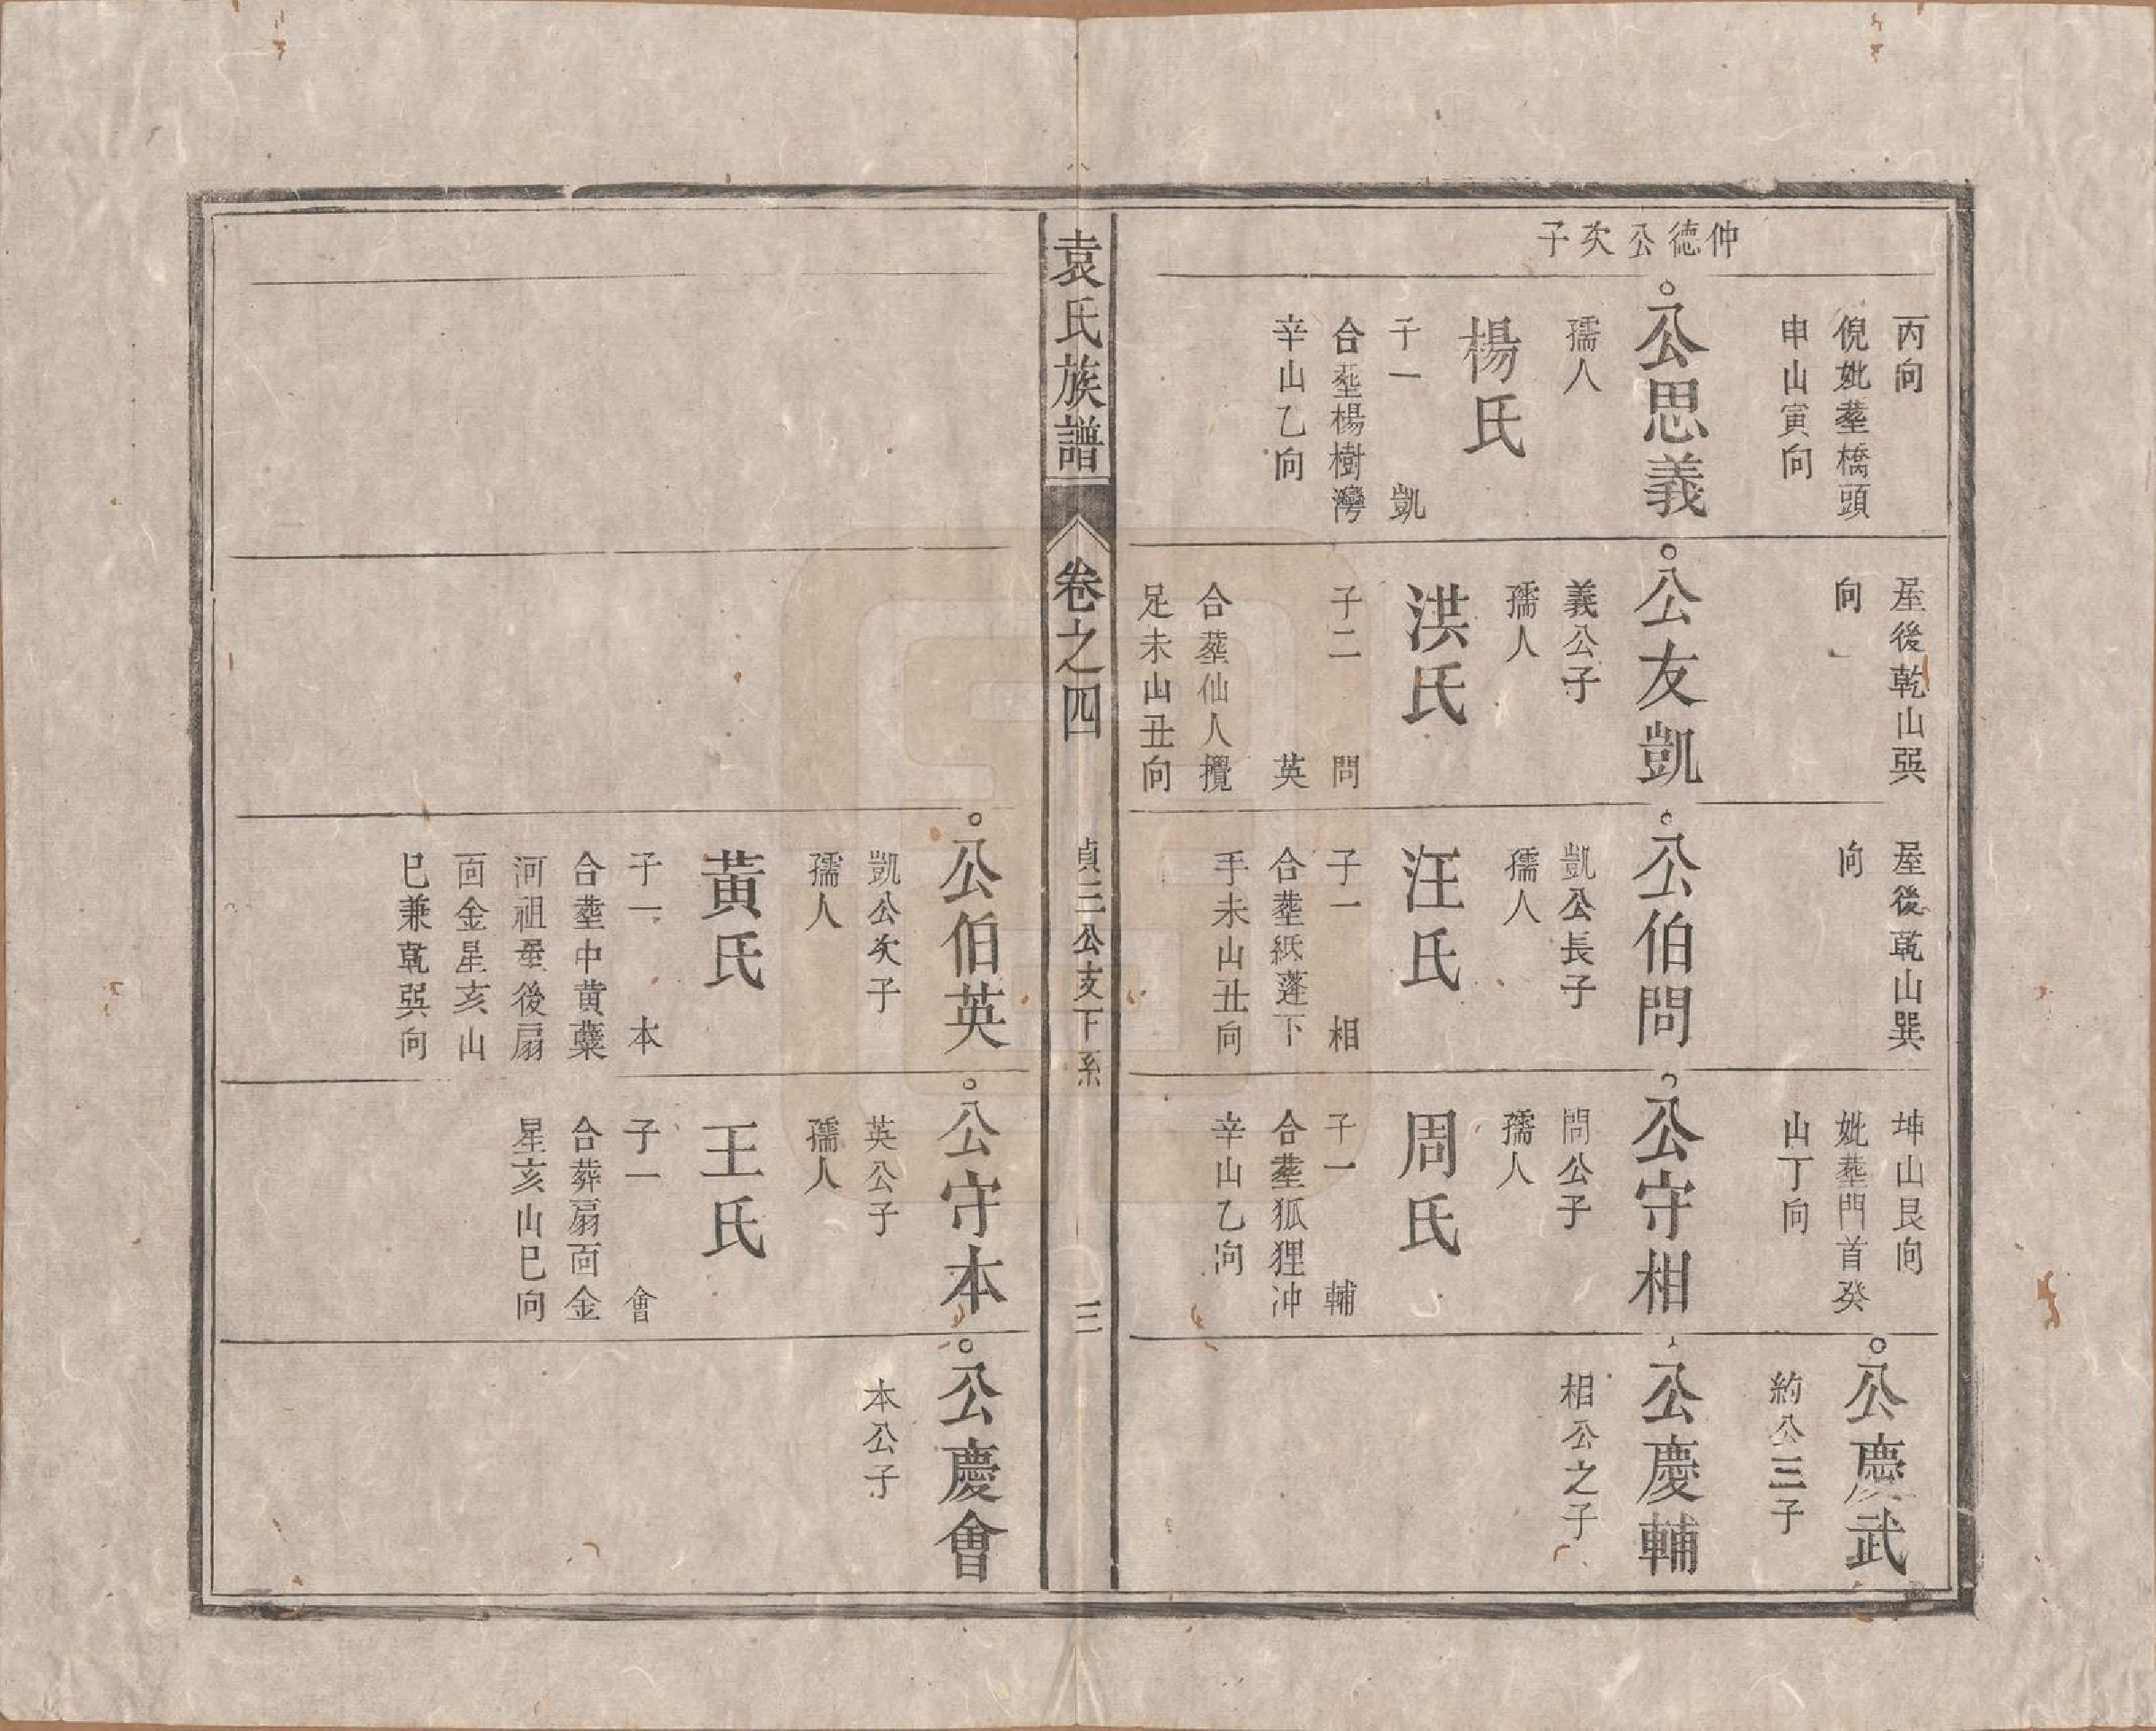 仲德公次子
丙向
倪妣塟橋頭
申山寅向
公思義
孺人
楊氏
子一 凱
合塟楊樹灣
辛山乙向
屋後乾山巽
向
公友凱
義公子
孺人
洪氏
子二 問
英
合塟仙人攪
足未山丑向
屋後乾山巽
向
公伯問
凱公長子
孺人
汪氏
子一 相
合塟紙蓬下
手未山丑向
坤山艮向
妣塟門首癸
山丁向
公守相
問公子
孺人
周氏
子一 輔
合塟狐狸沖
辛山乙向
公慶武
約公三子
公慶輔
相公之子
袁氏族譜
卷之四
貞三公支下系
三
公伯英
凱公次子
孺人
黃氏
子一 本
合塟中黄蘗
河祖塋後扇
面金星亥山
巳兼乾巽向
公守本
英公子
孺人
王氏
子一 會
合葬扇面金
星亥山巳向
公慶會
本公子